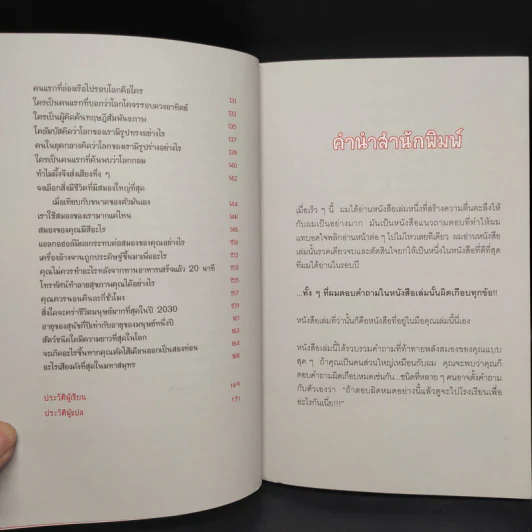 คนแรกที่ล่องเรือไปรอบโลกคือใคร
ใครเป็นคนแรกที่บอกว่าโลกโคจรรอบดวงอาทิตย์ 131
ใครเป็นผู้คิดค้นทฤษฎีสัมพันธภาพ 133
โคลัมบัสคิดว่าโลกของเรามีรูปทรงอย่างไร 135
คนในยุคกลางคิดว่าโลกของเรามีรูปร่างอย่างไร 137
ใครเป็นคนแรกที่ค้นพบว่าโลกกลม 138
ทำไมผึ้งจึงส่งเสียงหึ่ง ๆ 140
จงเลือกสิ่งมีชีวิตที่มีสมองใหญ่ที่สุด 142
เมื่อเทียบกับขนาดของตัวมันเอง
เราใช้สมองของเรามากแค่ไหน 144
สมองของคุณมีสีอะไร 148
แอลกอฮอล์มีผลกระทบต่อสมองของคุณอย่างไร 150
เครื่องล้างจานถูกประดิษฐ์ขึ้นมาเพื่ออะไร 152
คุณไม่ควรทำอะไรหลังจากทานอาหารเสร็จแล้ว 20 นาที 155
โทรทัศน์ทำลายสุขภาพคุณได้อย่างไร 157
คุณควรนอนคืนละกี่ชั่วโมง 159
สิ่งใดจะคร่าชีวิตมนุษย์มากที่สุดในปี 2030 161
อายุของสุนัขกี่ปีเท่ากับอายุของมนุษย์หนึ่งปี 163
สัตว์ชนิดใดมีความยาวที่สุดในโลก 164
จะเกิดอะไรขึ้นหากคุณตัดไส้เดือนออกเป็นสองท่อน 166
อะไรเสียงดังที่สุดในมหาสมุทร
ประวัติผู้เขียน 169
ประวัติผู้แปล 171
คำนำสำนักพิมพ์
เมื่อเร็ว ๆ นี้ ผมได้อ่านหนังสือเล่มหนึ่งที่สร้างความตื่นตะลึงให้
กับผมเป็นอย่างมาก มันเป็นหนังสือแนวถามตอบที่ทำให้ผม
แทบอดใจพลิกอ่านหน้าต่อ ๆ ไปไม่ไหวเลยทีเดียว ผมอ่านหนังสือ
เล่มนั้นรวดเดียวจบและตัดสินใจยกให้เป็นหนึ่งในหนังสือที่ดีที่สุด
ที่ผมได้อ่านในรอบปี
...ทั้ง ๆ ที่ผมตอบคำถามในหนังสือเล่มนั้นผิดเกือบทุกข้อ!!
หนังสือเล่มที่ว่านั้นก็คือหนังสือที่อยู่ในมือคุณเล่มนี้นี่เอง
หนังสือเล่มนี้ได้รวบรวมคำถามที่ท้าทายพลังสมองของคุณแบบ
สุด ๆ ถ้าคุณเป็นคนส่วนใหญ่เหมือนกับผม คุณจะพบว่าคุณก็
ตอบคำถามผิดเกือบหมดเช่นกัน...ชนิดที่หลาย ๆ คนอาจตั้งคำถาม
กับตัวเองว่า "ถ้าตอบผิดหมดอย่างนี้แล้วตูจะไปโรงเรียนเพื่อ
อะไรกันเนี่ย!!!"